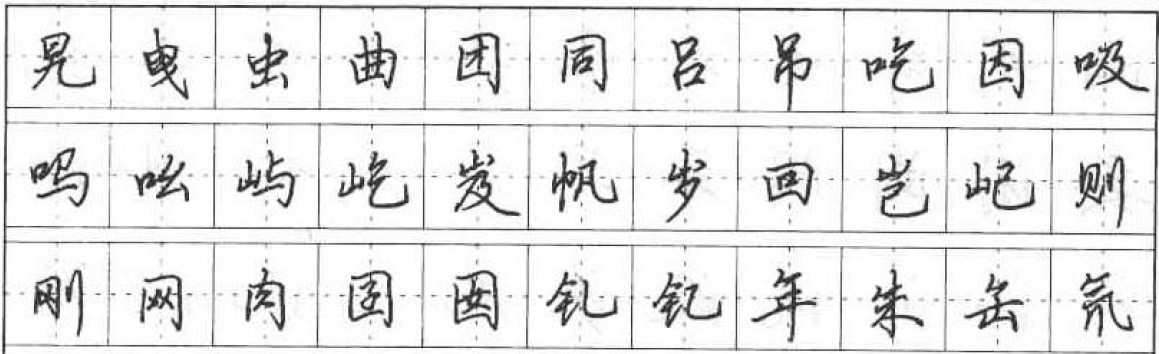 旯曳虫曲团同吕吊吃因吸
吗吆屿屹岌帆岁回岂屺则
刚网肉囝囡钆钇年朱缶氘